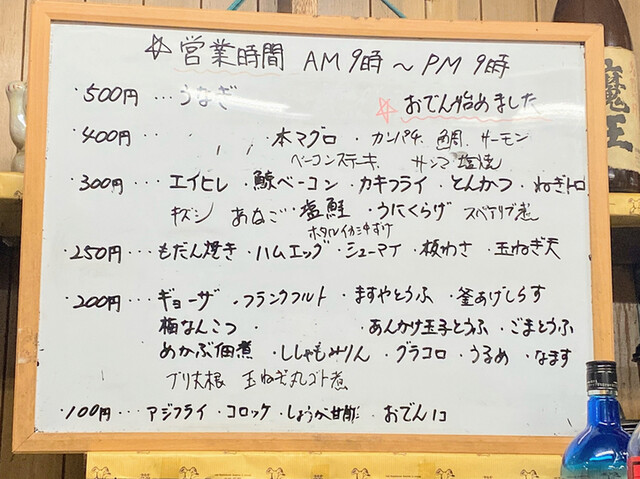 ☆ 営業時間 AM 9時 ~ PM 9時
・500円 … うなぎ
☆ おでん始めました
・400円 … 本マグロ ・カンパチ、鯛、サーモン
ベーコンステーキ、サンマ塩焼
・300円 … エイヒレ ・鯨ベーコン ・カキフライ ・とんかつ ・ねぎトロ
キズシ あなご ・塩鮭 ・うにくらげ スペアリブ煮
ホタルイカ沖づけ
・250円 … もだん焼き ・ハムエッグ ・シューマイ ・板わさ ・玉ねぎ天
・200円 … ギョーザ ・フランクフルト ・ますやとうふ ・釜あげしらす
梅なんこつ ・あんかけ玉子とうふ ・ごまとうふ
めかぶ佃煮 ・ししゃもみりん ・グラコロ ・うるめ ・なます
ブリ大根 玉ねぎ丸ゴト煮
・100円 … アジフライ ・コロッケ ・しょうが甘酢 おでん1コ
魔王